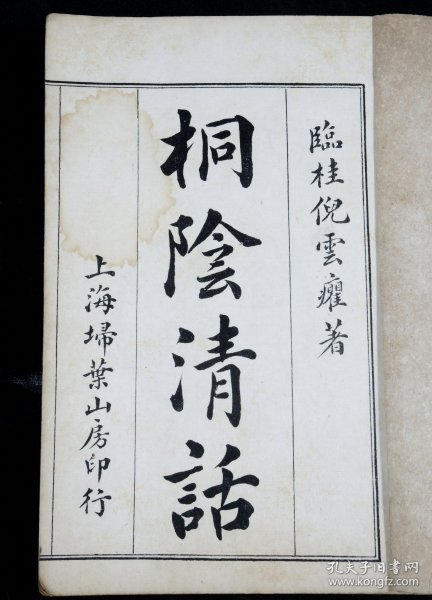 臨桂倪雲癯著
桐陰清話
上海埽葉山房印行
孔夫子旧书网
www.kongfz.com